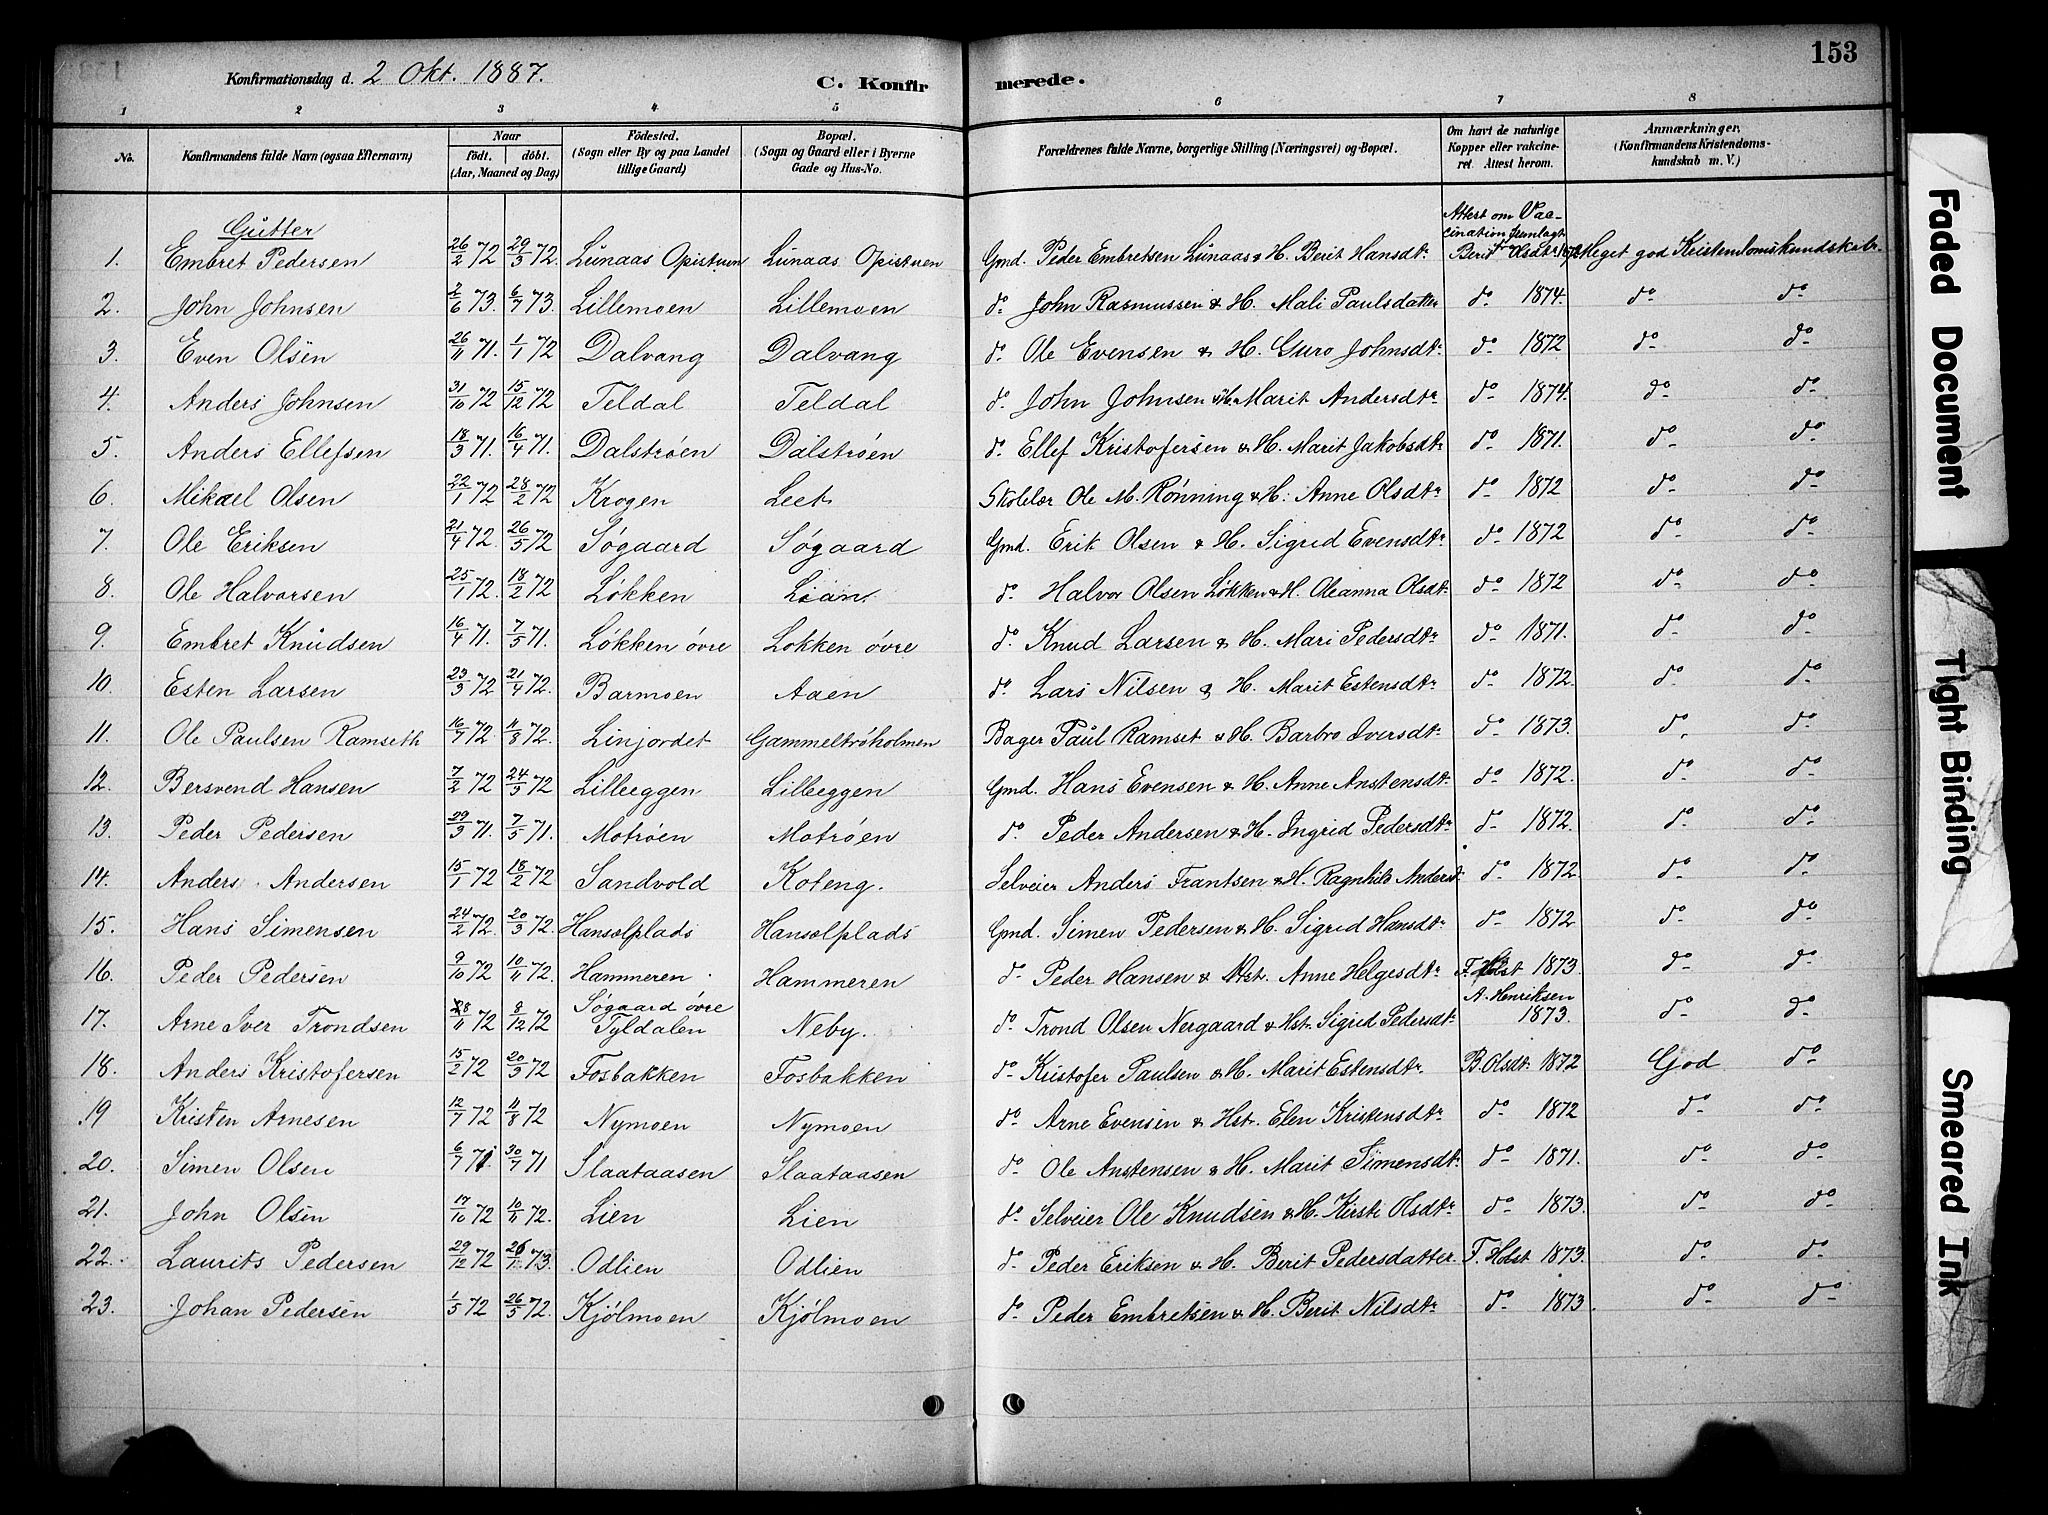 153
Konfirmationsdag d. 2 Okt. 1887.
C. Konfirmerede.
1 2 3 4 5 6 7 8
No. Konfirmandens fulde Navn (ogsaa Efternavn) Naar födt. döbt. (Aar, Maaned og Dag) Födested. (Sogn eller By og paa Landet tillige Gaard) Bopæl. (Sogn og Gaard eller i Byerne Gade og Hus-No. Forældrenes fulde Navne, borgerlige Stilling (Næringsvei) og Bopæl. Om havt de naturlige Kopper eller vakcineret. Attest herom. Anmærkninger. (Konfirmandens Kristendomskundskab m. V.)
Gutter
1. Embret Pedersen 26/2 72 29/3 72. Lunaas Opistuen Lunaas Opistuen Gmd. Peder Embretsen Lunaas & H. Berit Hansdtr. Attest om Vaccination fremlagt Berit Olsdtr 1872 Meget god Kristendomskundskab
2. John Johnsen 2/6 73. 6/7 73. Lillemoen Lillemoen do John Rasmussen & H. Mali Paulsdatter do 1874. do do
3. Even Olsen 26/11 71. 1/1 72 Dalvang Dalvang do Ole Evensen & H. Guro Johnsdtr. do 1872 do do
4. Anders Johnsen 31/10 72 15/12 72 Teldal Teldal do John Johnsen & H. Marit Andersdtr do 1874. do do
5. Anders Ellefsen 18/3 71. 16/4 71. Dalströen Dalströen do Ellef Kristofersen & H. Marit Jakobsdtr do 1871. do do
6. Mikael Olsen 22/1 72. 28/2 72 Krogen Leet Skolelær Ole M. Rönning & H. Anne Olsdtr do 1872 do do
7. Ole Eriksen 21/4 72. 26/5 72 Søgaard Søgaard Gmd. Erik Olsen & H. Sigrid Evensdtr. do 1872 do do
8. Ole Halvorsen 25/1 72. 18/2 72 Løkken Lian do Halvor Olsen Løkken & H. Oleanna Olsdtr do 1872 do do
9. Embret Knudsen 16/4 71. 7/5 71. Løkken övre Løkken övre do Knud Larsen & H. Mari Pedersdtr do 1871. do do
10. Esten Larsen 23/3 72 21/4 72. Barmoen Aaen do Lars Nilsen & H. Marit Estensdtr do 1872. do do
11. Ole Paulsen Ramseth 16/7 72. 11/8 72. Linjordet Gammeltröholmen Bager Paul Ramset & H. Barbro Iversdtr. do 1873. do do
12. Bersvend Hansen 7/2 72 24/3 72 Lilleeggen Lilleeggen Gmd. Hans Evensen & H. Anne Anstensdtr. do 1872. do do
13. Peder Pedersen 29/3 71. 7/5 71. Moströen Moströen do Peder Andersen & H. Ingrid Pedersdtr do 1872. do do
14. Anders Andersen 15/1 72 18/2 72 Sandvold Koteng. Selveier Anders Frantsen & H. Ragnhild Andersdtr do 1872 do do
15. Hans Simensen 24/2 72. 20/3 72. Hansolplads Hansolplads Gmd. Simen Pedersen & H. Sigrid Hansdtr do 1872 do do
16. Peder Pedersen 9/10 72 10/11 72. Hammeren Hammeren do Peder Hansen & Hst. Anne Helgesdtr F. Holst 1873. do do
17. Arne Iver Trondsen 28/11 72 8/12 72 Søgaard övre Tyldalen Neby. do Trond Olsen Nergaard & Hst. Sigrid Pedersdtr A. Henriksen 1873. do do
18. Anders Kristofersen 15/2 72 20/3 72 Fosbakken Fosbakken do Kristofer Paulsen & H. Marit Estensdtr. B. Olsdtr. 1872 God do
19 Kristen Arnesen 12/7 72 11/8 72 Nymoen Nymoen do Arne Evensen & Hst. Elen Kristensdtr do 1872 do do
20. Simen Olsen 6/7 71 30/7 71 Slaataasen Slaataasen do Ole Anstensen & H. Marit Simensdtr. do 1871. do do
21. John Olsen 17/10 72 10/11 72. Lien Lien do Selveier Ole Knudsen & H. Kirsti Olsdtr do 1873. do do
22. Laurits Pedersen 29/12 72 26/1 73. Odlien Odlien do Peder Eriksen & H. Berit Pedersdatter. F. Holst 1873. do do
23. Johan Pedersen 1/5 72 26/5 72. Kjölmoen Kjölmoen do Peder Embretsen & H. Berit Nilsdtr do 1873. do do
Faded Document
Tight Binding
Smeared Ink